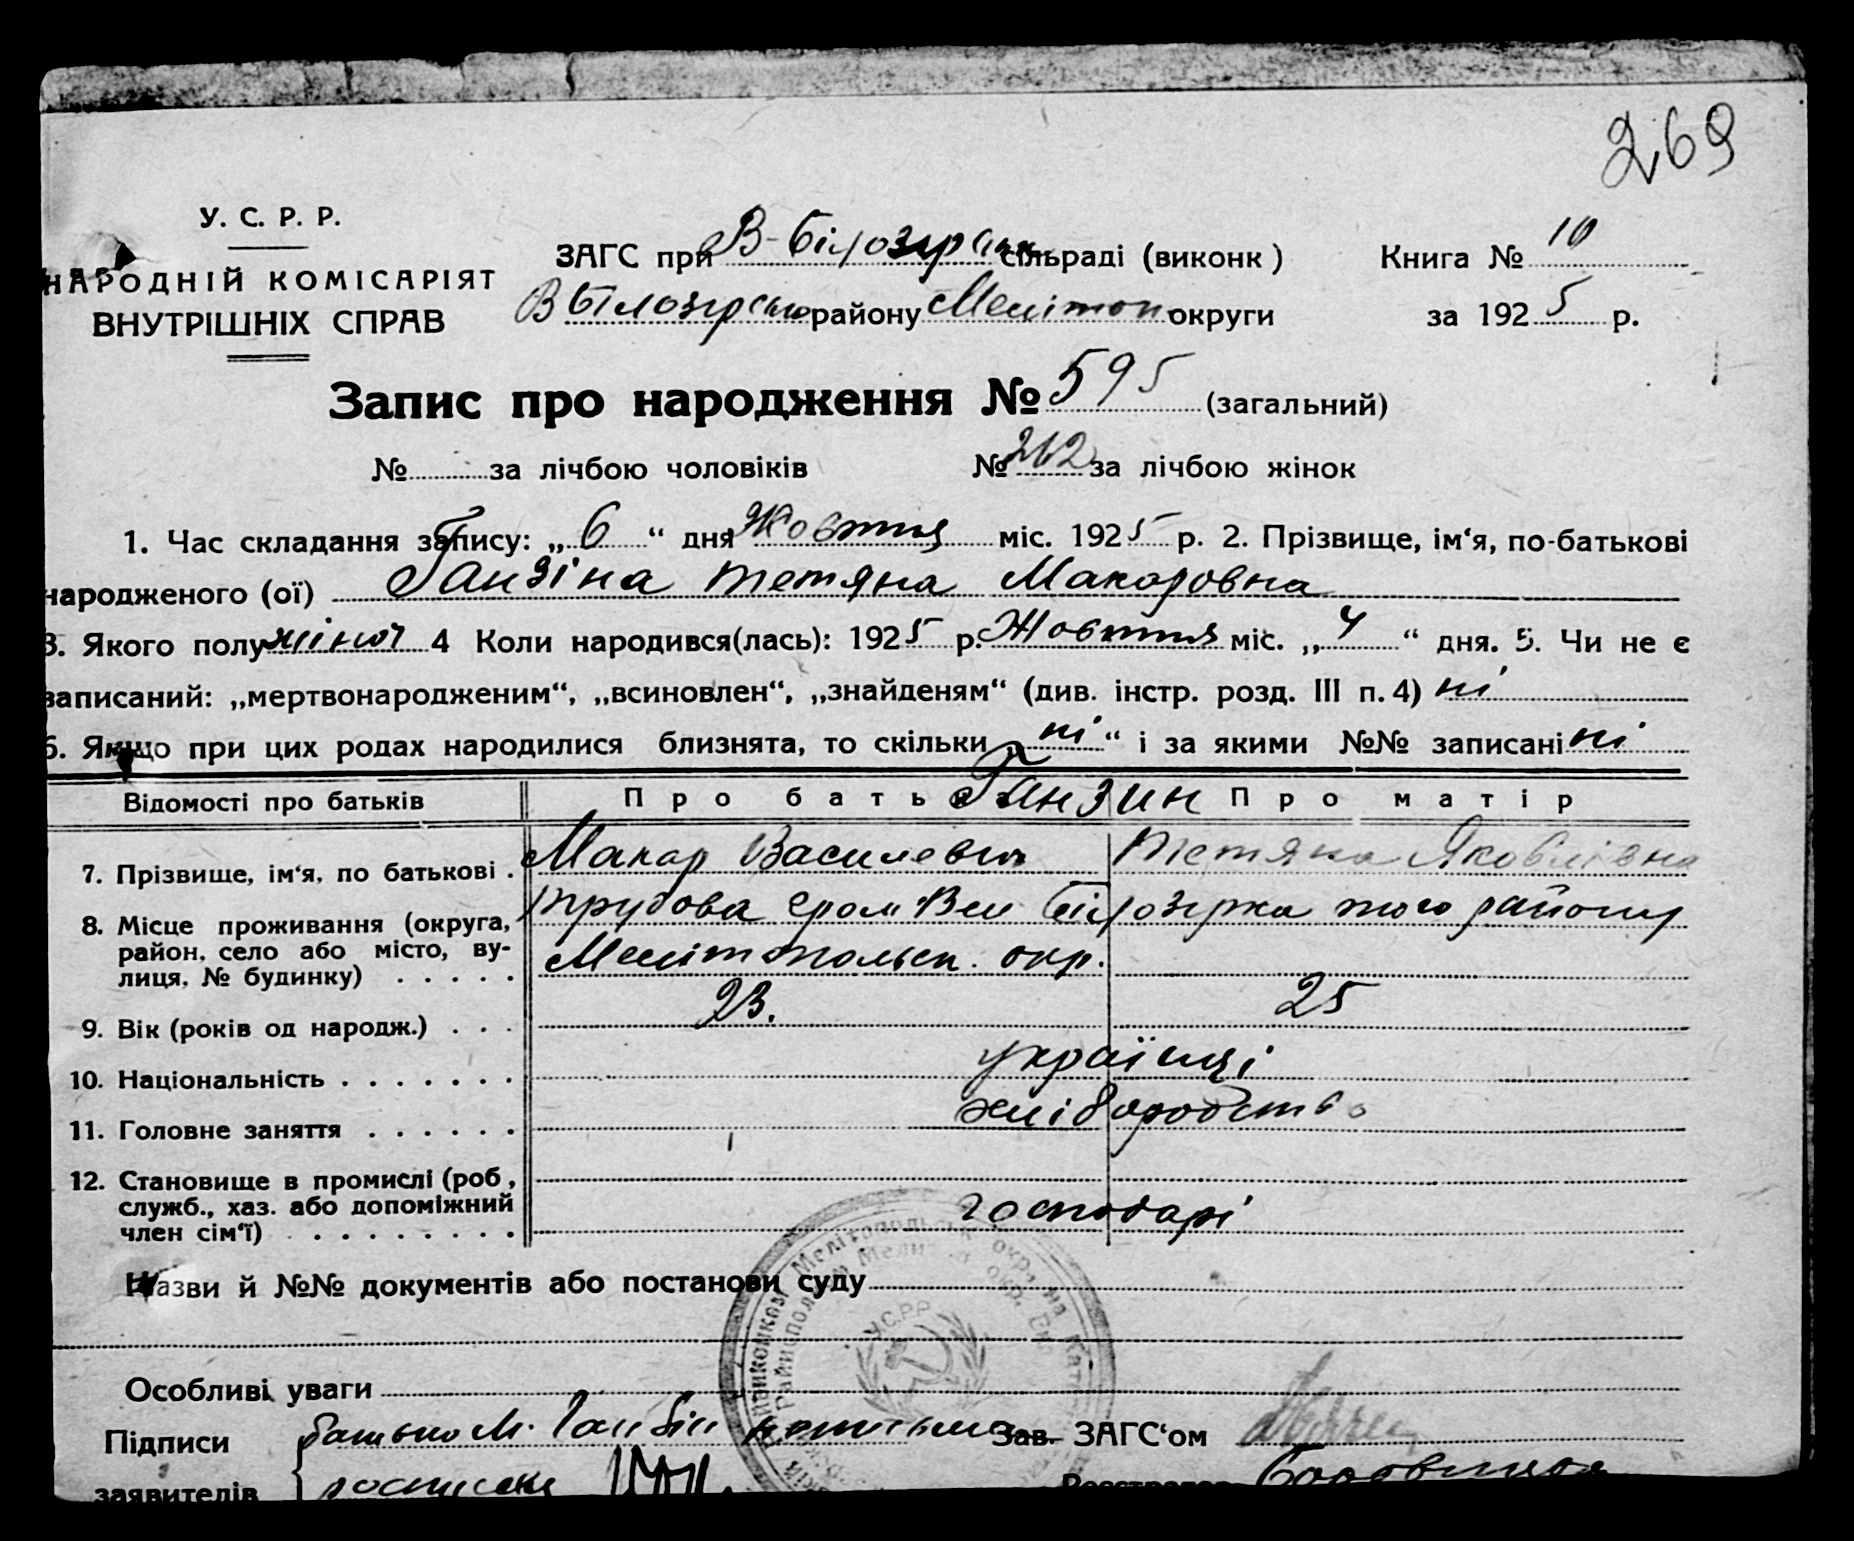 269
У. С. Р. Р.
НАРОДНІЙ КОМІСАРІЯТ
ВНУТРІШНІХ СПРАВ
ЗАГС при В-Білозірськ сільраді (виконк)
Книга № 10
В Білозірсько району Мелітоп округи
за 1925 р.
Запис про народження № 595 (загальний)
№ за лічбою чоловіків № 262 за лічбою жінок
1. Час складання запису: „6“ дня Жовтня міс. 1925 р. 2. Прізвище, ім‘я, по-батькові
народженого (ої) Ганзіна Тетяна Макаровна
3. Якого полу жіночі 4 Коли народився(лась): 1925 р. Жовтня міс. „4“ дня. 5. Чи не є
записаний: „мертвонародженим“, „всиновлен“, „знайденям“ (див. інстр. розд. III п. 4) ні
6. Якщо при цих родах народилися близнята, то скільки „ні“ і за якими №№ записані ні
Відомості про батьків
Про батька
Ганзин
Про матір
7. Прізвище, ім‘я, по батькові .
Макар Василевич
Тетяна Яковлівна
8. Місце проживання (округа,
район, село або місто, ву-
лиця, № будинку) . . . . .
Трудова гром Вел Білозірка того району
Мелітопольськ. окр.
9. Вік (років од народж.) . . .
23.
25
10. Національність . . . . . . .
українці
11. Головне заняття . . . . . .
хліборобство
12. Становище в промислі (роб,
служб., хаз. або допоміжний
член сім‘ї) . . . . . . . . .
господарі
Назви й №№ документів або постанови суду
У.С.Р.Р.
Особливі уваги
Підписи
заявителів
батько М. Ганзін
Зав. ЗАГС‘ом
Реєстратор